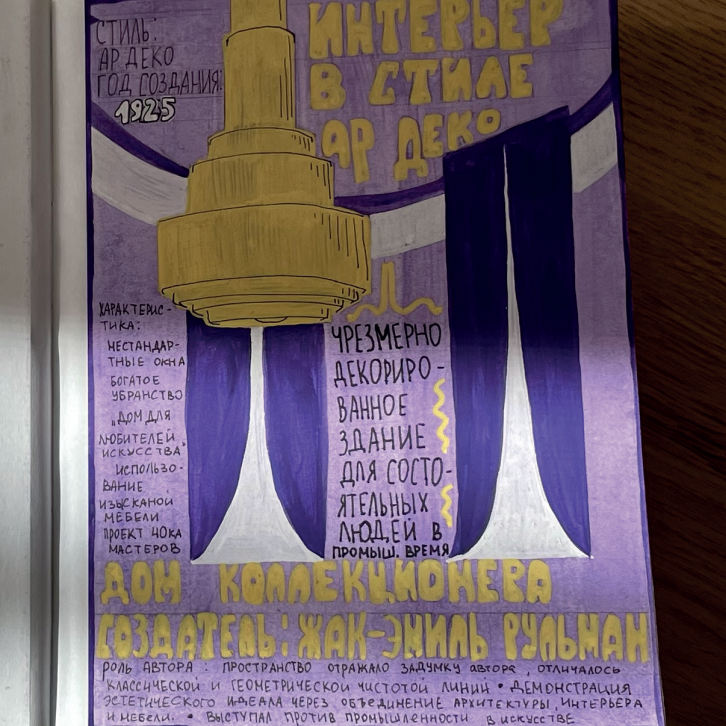 СТИЛЬ:
АР ДЕКО
ГОД СОЗДАНИЯ:
1925
ИНТЕРЬЕР
В СТИЛЕ
АР ДЕКО
ХАРАКТЕРИС-
ТИКА:
НЕСТАНДАР-
ТНЫЕ ОКНА
БОГАТОЕ
УБРАНСТВО
„ДОМ ДЛЯ
ЛЮБИТЕЛЕЙ
ИСКУССТВА"
ИСПОЛЬЗО-
ВАНИЕ
ИЗЫСКАНОЙ
МЕБЕЛИ
ПРОЕКТ 40КА
МАСТЕРОВ
ЧРЕЗМЕРНО
ДЕКОРИРО-
ВАННОЕ
ЗДАНИЕ
ДЛЯ СОСТО-
ЯТЕЛЬНЫХ
ЛЮДЕЙ В
ПРОМЫШ. ВРЕМЯ
ДОМ КОЛЛЕКЦИОНЕРА
СОЗДАТЕЛЬ: ЖАК-ЭМИЛЬ РУЛЬМАН
РОЛЬ АВТОРА: ПРОСТРАНСТВО ОТРАЖАЛО ЗАДУМКУ АВТОРА, ОТЛИЧАЛОСЬ
КЛАССИЧЕСКОЙ И ГЕОМЕТРИЧЕСКОЙ ЧИСТОТОЙ ЛИНИИ • ДЕМОНСТРАЦИЯ
ЭСТЕТИЧЕСКОГО ИДЕАЛА ЧЕРЕЗ ОБЪЕДИНЕНИЕ АРХИТЕКТУРЫ, ИНТЕРЬЕРА
И МЕБЕЛИ. • ВЫСТУПАЛ ПРОТИВ ПРОМЫШЛЕННОСТИ В ИСКУССТВЕ